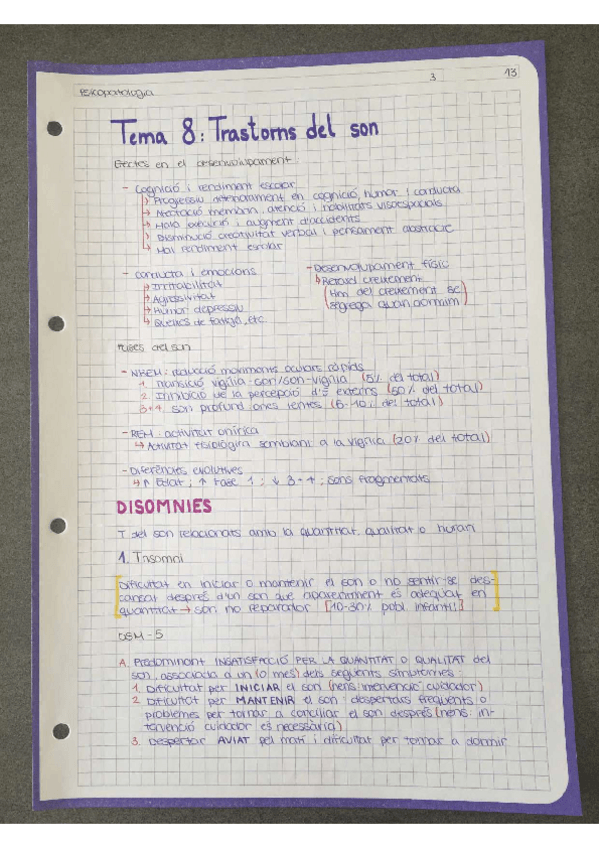 Psicopatologia
3
13
Tema 8: Trastorns del son
Efectes en el desenvolupament
- Cognició i rendiment escolar
↳ Progressiu deteriorament en cognició, humor i conducta
↳ Afectació memòria, atenció i habilitats visoespacials
↳ Mala execució i augment d'accidents
↳ Disminució creativitat verbal i pensament abstracte
↳ Mal rendiment escolar
- Conducta i emocions
↳ Irritabilitat
↳ Agressivitat
↳ Humor depressiu
↳ Queixes de fatiga, etc.
- Desenvolupament físic
↳ Retard creixement
(Hm. del creixement se
segrega quan dormim)
Fases del son
- NREM: reducció moviments oculars ràpids
1. Transició vigília-son/son-vigília (5% del total)
2. Inhibició de la percepció d'e. externs (50% del total)
3+4. son profund ones lentes (6-10% del total)
- REM: activitat onírica
↳ Activitat fisiològica semblant a la vigília (20% del total)
- Diferències evolutives
↳ ↑ Edat; ↑ Fase 1; ↓ 3-4; sons fragmentats
DISOMNIES
T. del son relacionats amb la quantitat, qualitat o horari
1. Insomni
Dificultat en iniciar o mantenir el son o no sentir-se des-
cansat després d'un son que aparentment és adequat en
quantitat → son no reparador [10-30% pobl. infantil]
DSM-5
A. Predominant INSATISFACCIÓ PER LA QUANTITAT O QUALITAT del
son, associada a un (o més) dels següents símptomes:
1. Dificultat per INICIAR el son (nens: intervenció cuidador)
2. Dificultat per MANTENIR el son: despertars freqüents o
problemes per tornar a conciliar el son després (nens: in-
tervenció cuidador és necessària)
3. Despertar AVIAT pel matí i dificultat per tornar a dormir